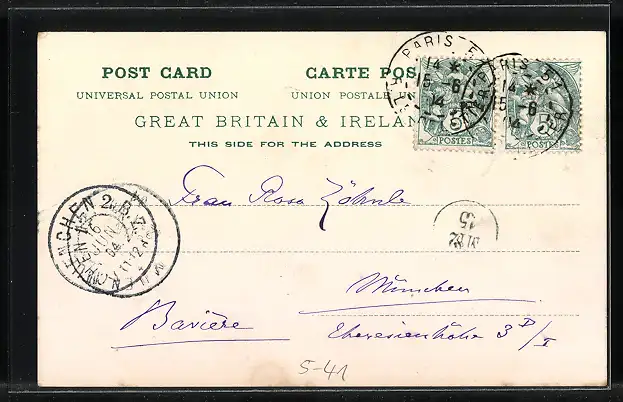 POST CARD CARTE POS
UNIVERSAL POSTAL UNION UNION POSTALE U
GREAT BRITAIN & IRELAN
THIS SIDE FOR THE ADDRESS
PARIS
14 *
15 -6
04
5
POSTES
PARIS
14 *
15 -6
04
5
POSTES
MÜNCHEN 2. B.Z.
16
JUN
04
11-12
15
Frau Rosa Zöhnle
München
Bavière Theresienhöhe 3 D/I
5-41